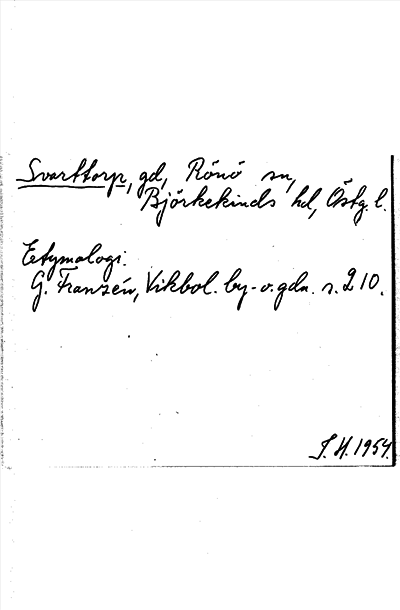 Svarttorp, gd, Rönö sn,
Björkekinds hd, Östg. l.
Etymologi.
G. Franzén, Vikbol. by- o. gdn. s. 210.
S. H. 1954.